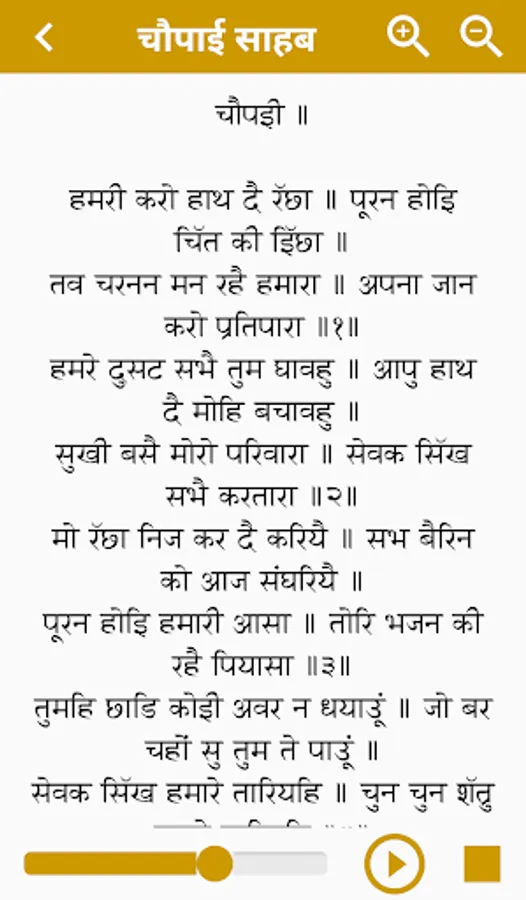 चौपाई साहब
चौपइी ॥
हमरी करो हाथ दै रॱछा ॥ पूरन होइि
चिॱत की इिॱछा ॥
तव चरनन मन रहै हमारा ॥ अपना जान
करो प्रतिपारा ॥१॥
हमरे दुसट सभै तुम घावहु ॥ आपु हाथ
दै मोहि बचावहु ॥
सुखी बसै मोरो परिवारा ॥ सेवक सिॱख
सभै करतारा ॥२॥
मो रॱछा निज कर दै करियै ॥ सभ बैरिन
को आज संघरियै ॥
पूरन होइि हमारी आसा ॥ तोरि भजन की
रहै पियासा ॥३॥
तुमहि छाडि कोइी अवर न धयाउूं ॥ जो बर
चहों सु तुम ते पाउूं ॥
सेवक सिॱख हमारे तारियहि ॥ चुन चुन शॱत्रु